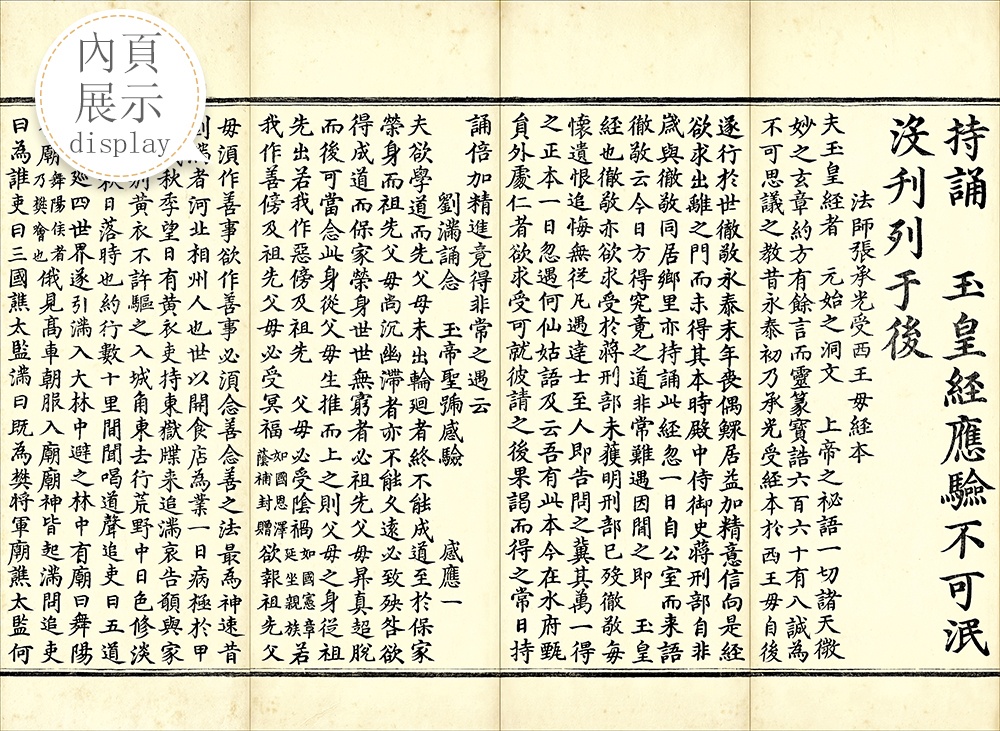 內頁
展示
display
持誦　玉皇經應驗不可泯
沒刋列于後
法師張承光受西王母經本
夫玉皇經者　元始之洞文　上帝之秘語一切諸天微
妙之玄章約方有餘言而靈篆寶誥六百六十有八誠為
不可思議之教昔永泰初乃承光受經本於西王母自後
遂行於世徹敬永泰末年喪偶鰥居益加精意信向是經
欲求出離之門而未得其本時殿中侍御史蔣刑部自非
嵗與徹敬同居鄉里亦持誦此經忽一日自公室而来語
徹敬云今日方得究竟之道非常難遇因閒之即　玉皇
經也徹敬亦欲求受於蔣刑部未獲明刑部已殁徹敬每
懷遺恨追悔無從凡遇達士至人即告問之冀其萬一得
之正本一日忽遇何仙姑語及云吾有此本今在水府甄
負外處仁者欲求受可就彼請之後果謁而得之常日持
誦倍加精進竟得非常之遇云
劉滿誦念　玉帝聖號感驗　感應一
夫欲學道而先父母未出輪廻者終不能成道至於保家
榮身而祖先父母尚沉幽滯者亦不能久遠必致殃咎欲
得成道而保家榮身世世無窮者必祖先父母昇真超脫
而後可當念此身從父母生推而上之則父母之身従祖
先出若我作惡傍及祖先　父母必受陰禍如國憲章延坐親族若
我作善傍及祖先父母必受冥福如國恩澤蔭補封贈欲報祖先父
母須作善事欲作善事必須念善念善之法最為神速昔
滿者河北相州人也世以開食店為業一日病極於甲
秋季望日有黄衣吏持東嶽牒来追滿哀告願與家
別黄衣不許驅之入城角東去行荒野中日色修淡
秋日落時也約行數十里間聞喝道聲追吏曰五道
廵四世界遂引滿入大林中避之林中有廟曰舞陽
廟舞陽侯者乃樊噲也俄見髙車朝服入廟廟神皆起滿問追吏
曰為誰吏曰三國譙太監滿曰既為樊將軍廟譙太監何